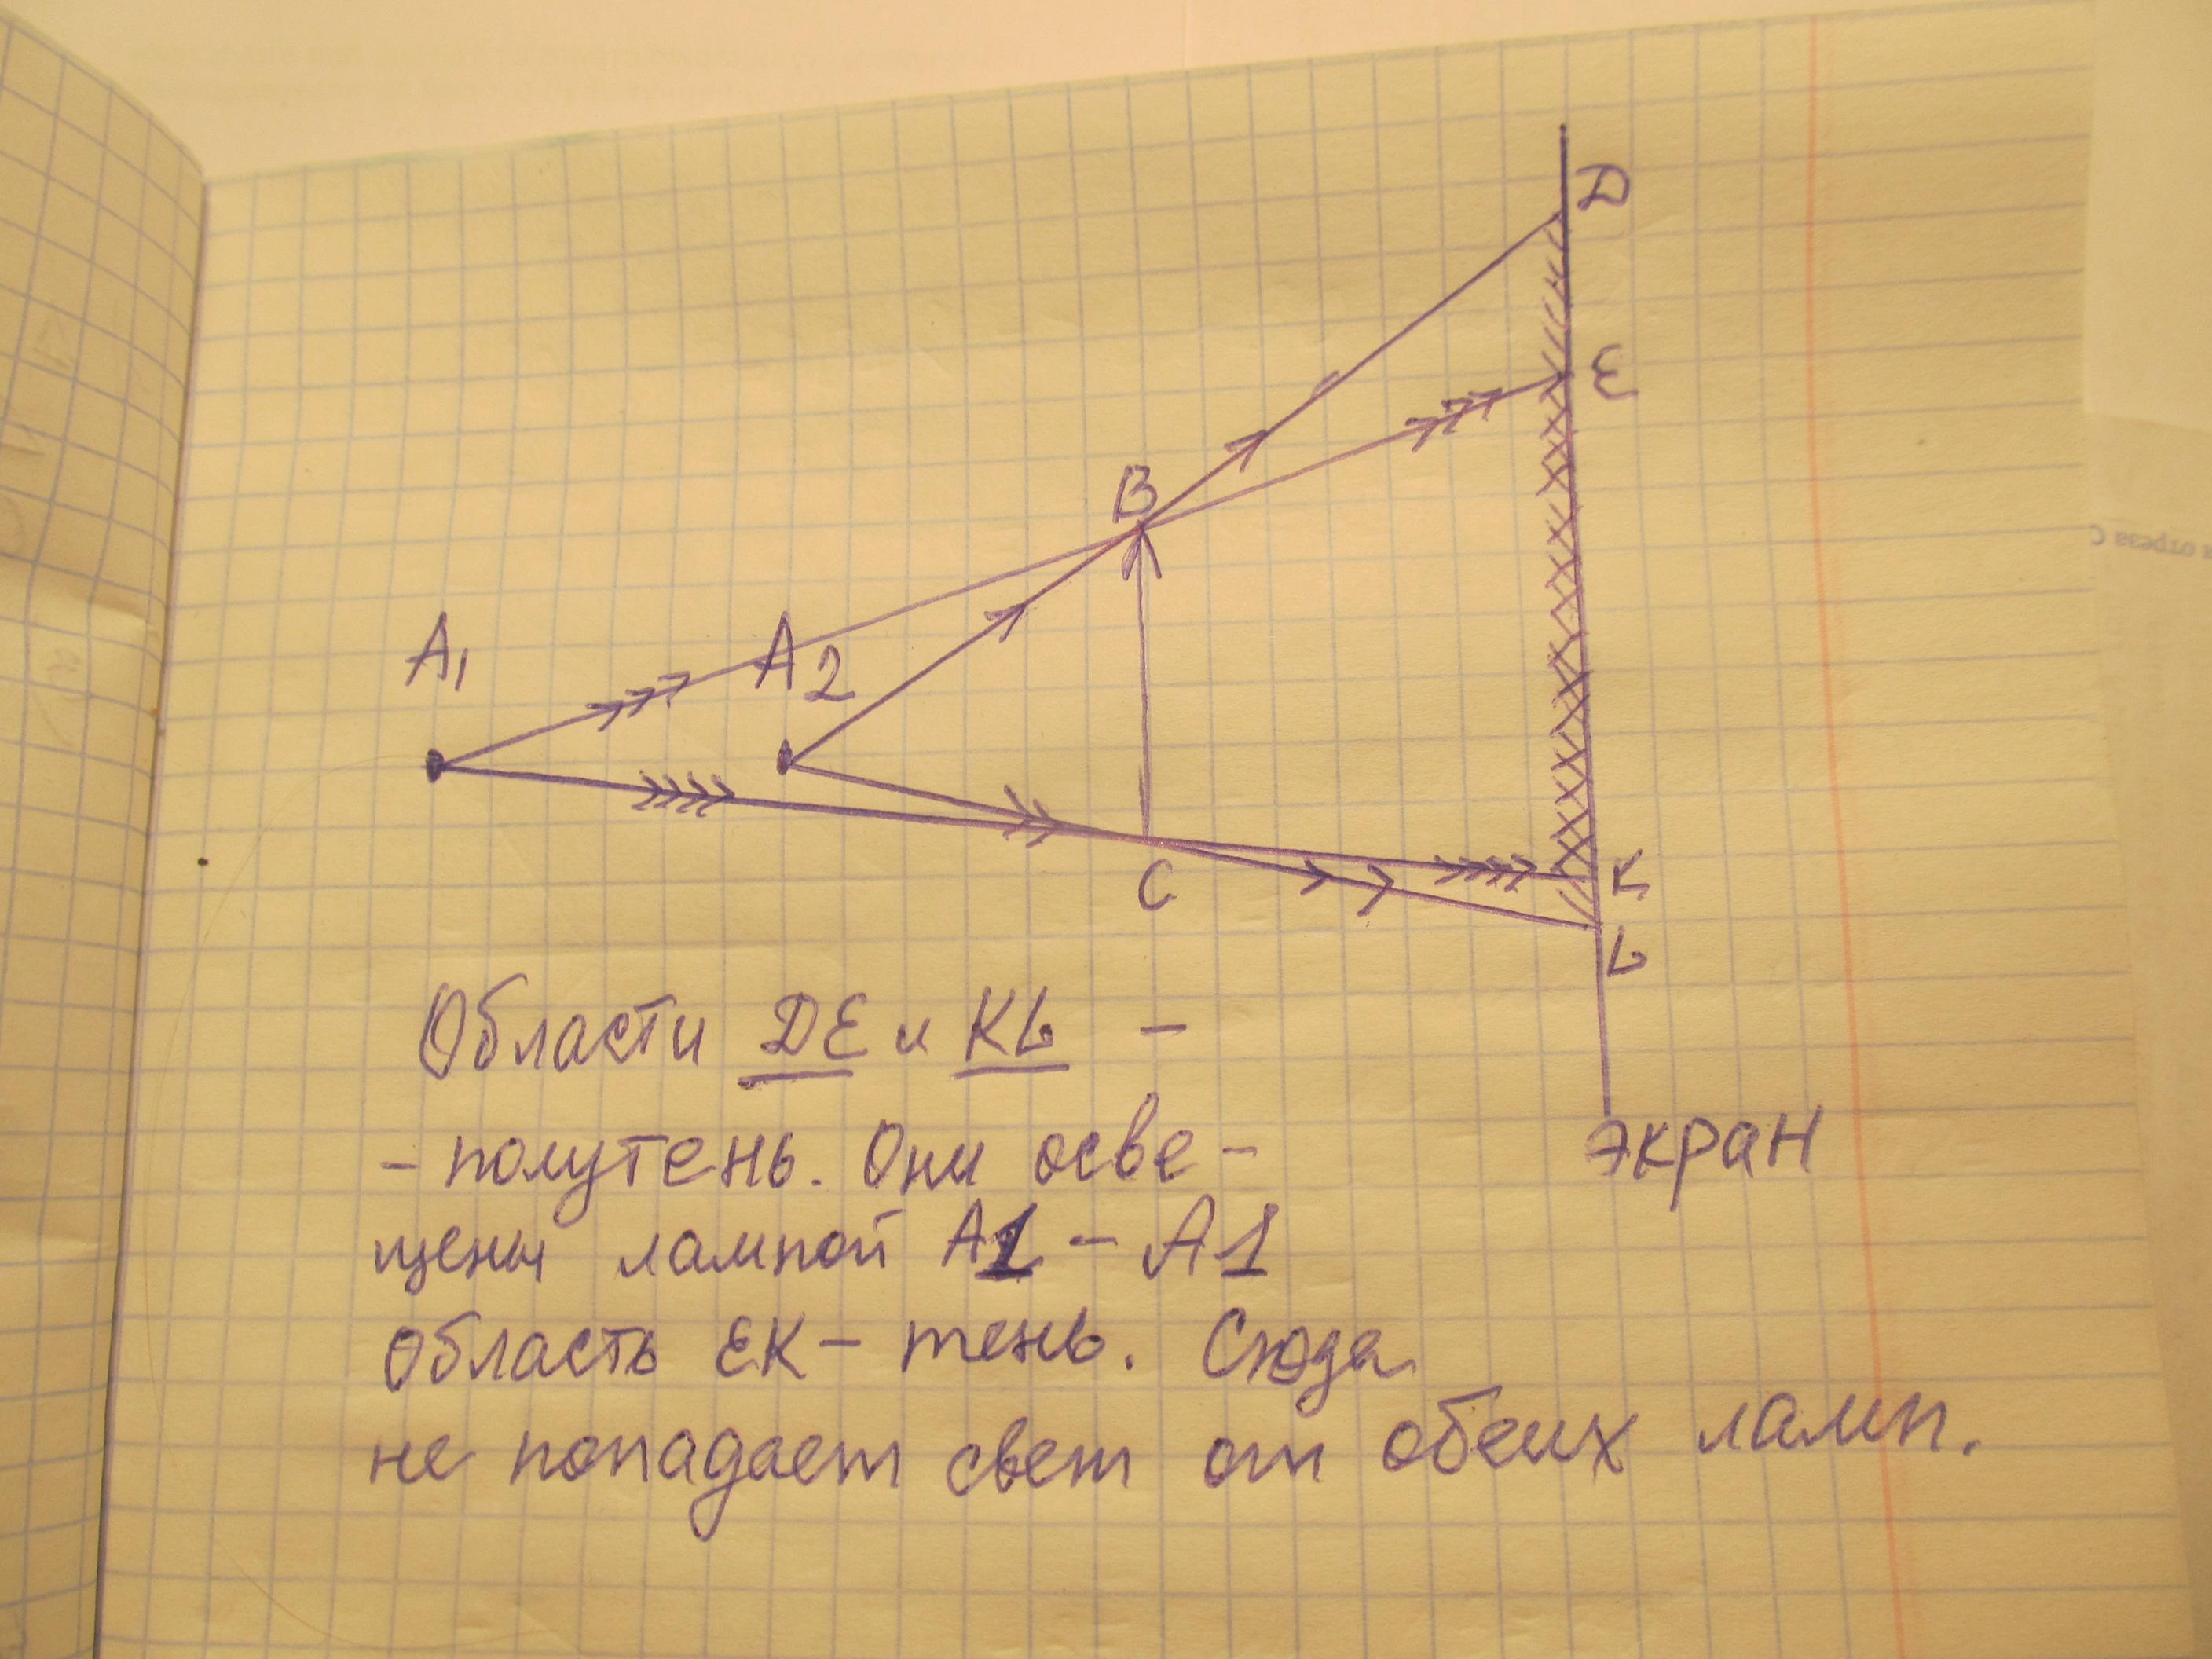 D
E
B
A1
A2
C
K
L
ЭКРАН
Области DE и KL -
- полутень. Они осве-
щены лампой A1 - A1
область EK - тень. Сюда
не попадает свет от обеих ламп.
я отреза